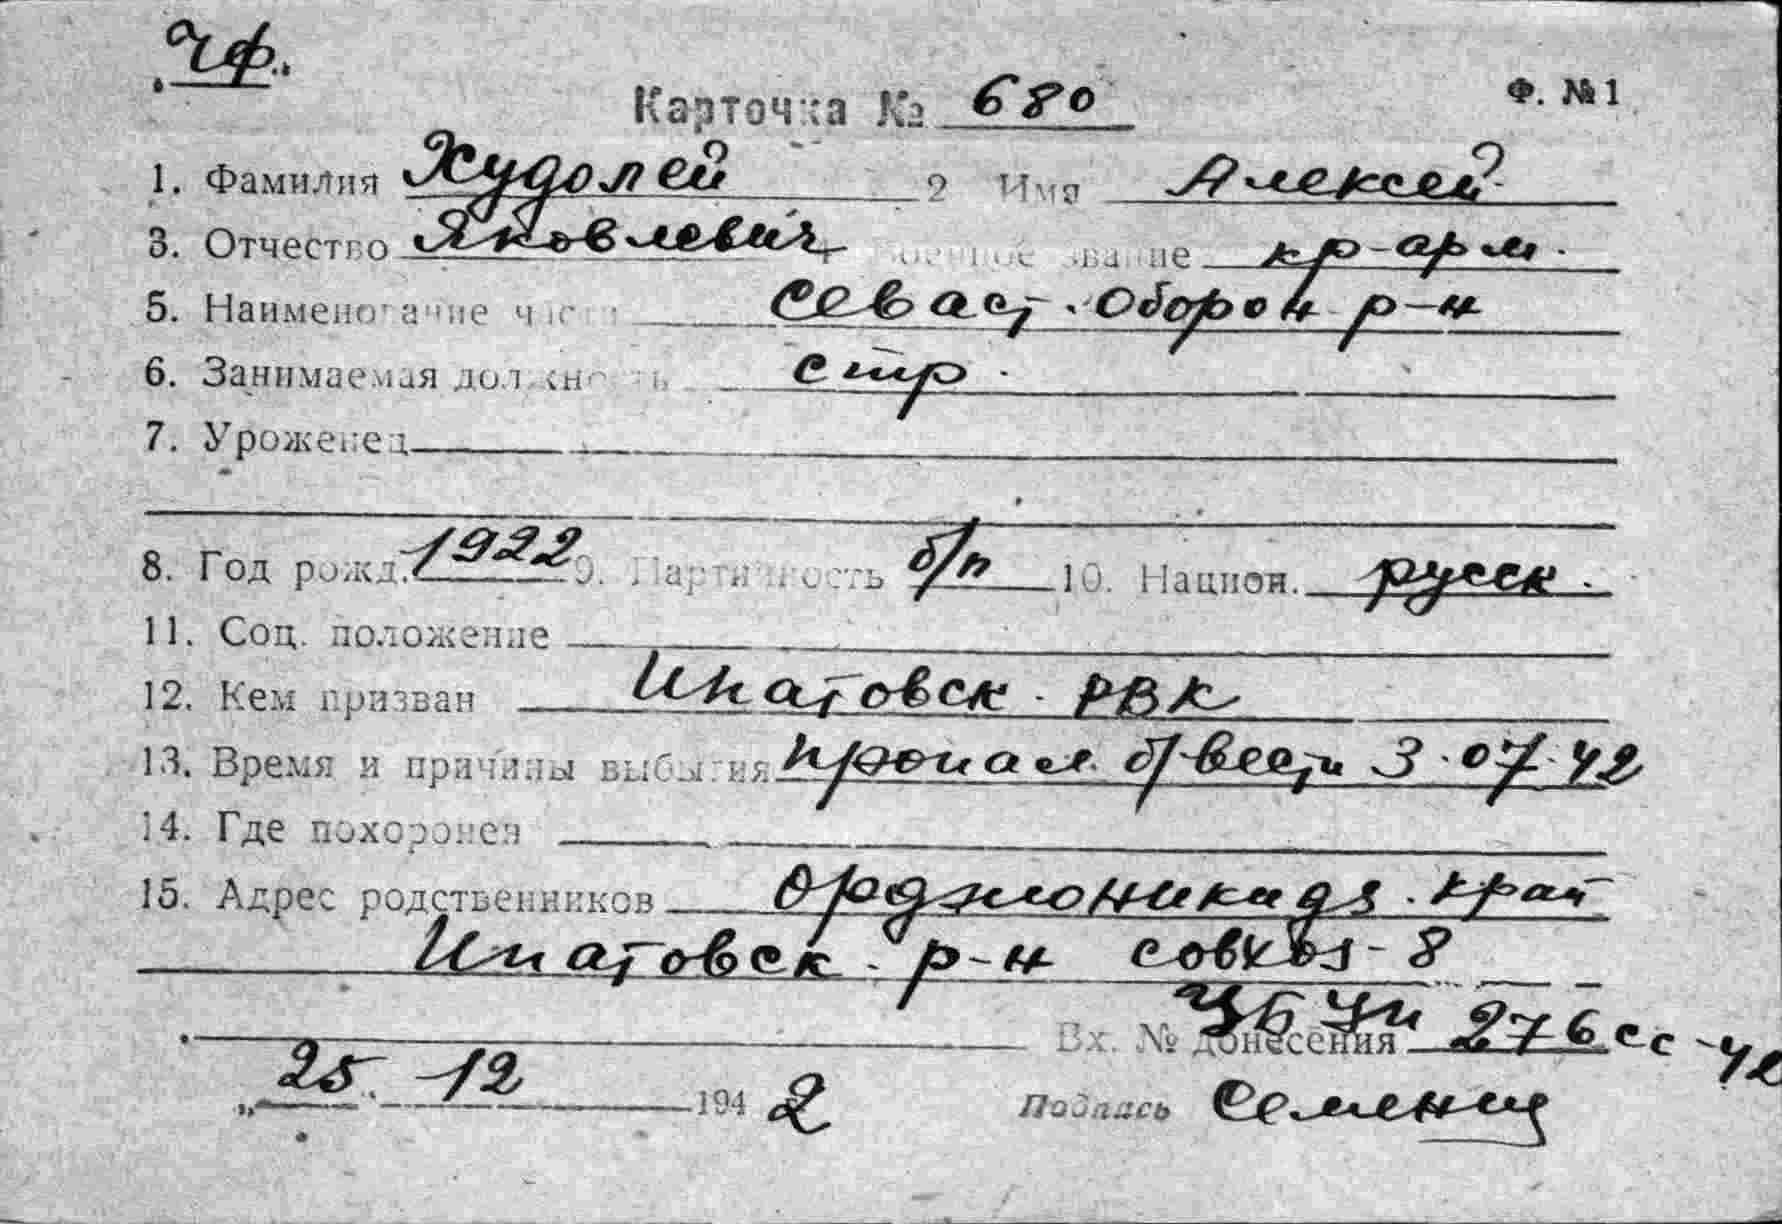 „ЧФ“
Карточка № 680 Ф. №1
1. Фамилия Худолей 2 Имя Алексей
3. Отчество Яковлевич Военное звание кр-арм.
5. Наименование части Севаст. Оборон р-н
6. Занимаемая должность стр.
7. Уроженец
8. Год рожд. 1922 9. Партийность б/п 10. Национ. русск.
11. Соц. положение
12. Кем призван Ипатовск. РВК
13. Время и причины выбытия пропал б/вести 3.07.42
14. Где похоронен
15. Адрес родственников Орджоникидз. край
Ипатовск. р-н совхоз-8
Вх. № донесения 276сс-42
„25“ 12 1942 Подпись